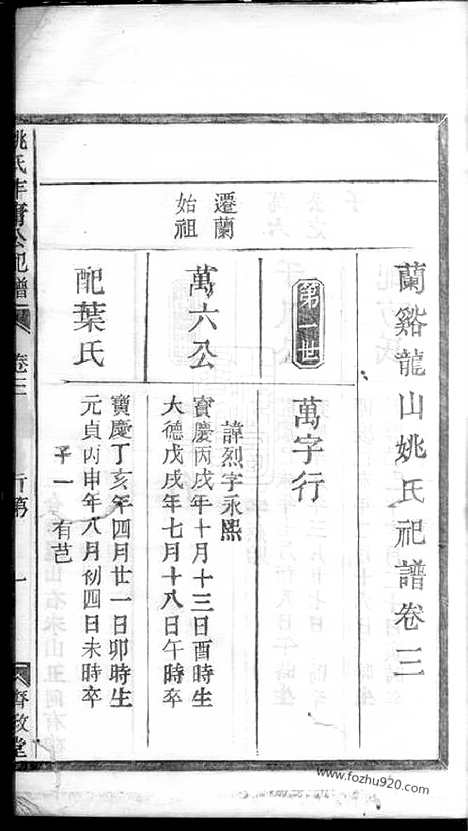 蘭谿龍山姚氏祀譜卷三
第一世
萬字行
遷蘭
始祖
萬六公
諱烈字永熙
寶慶丙戌年十月十三日酉時生
大德戊戌年七月十八日午時卒
配葉氏
寶慶丁亥年四月廿一日卯時生
元貞丙申年八月初四日未時卒
子一
有芑
卷三
行第
一
齊政堂
www.fozhu920.com